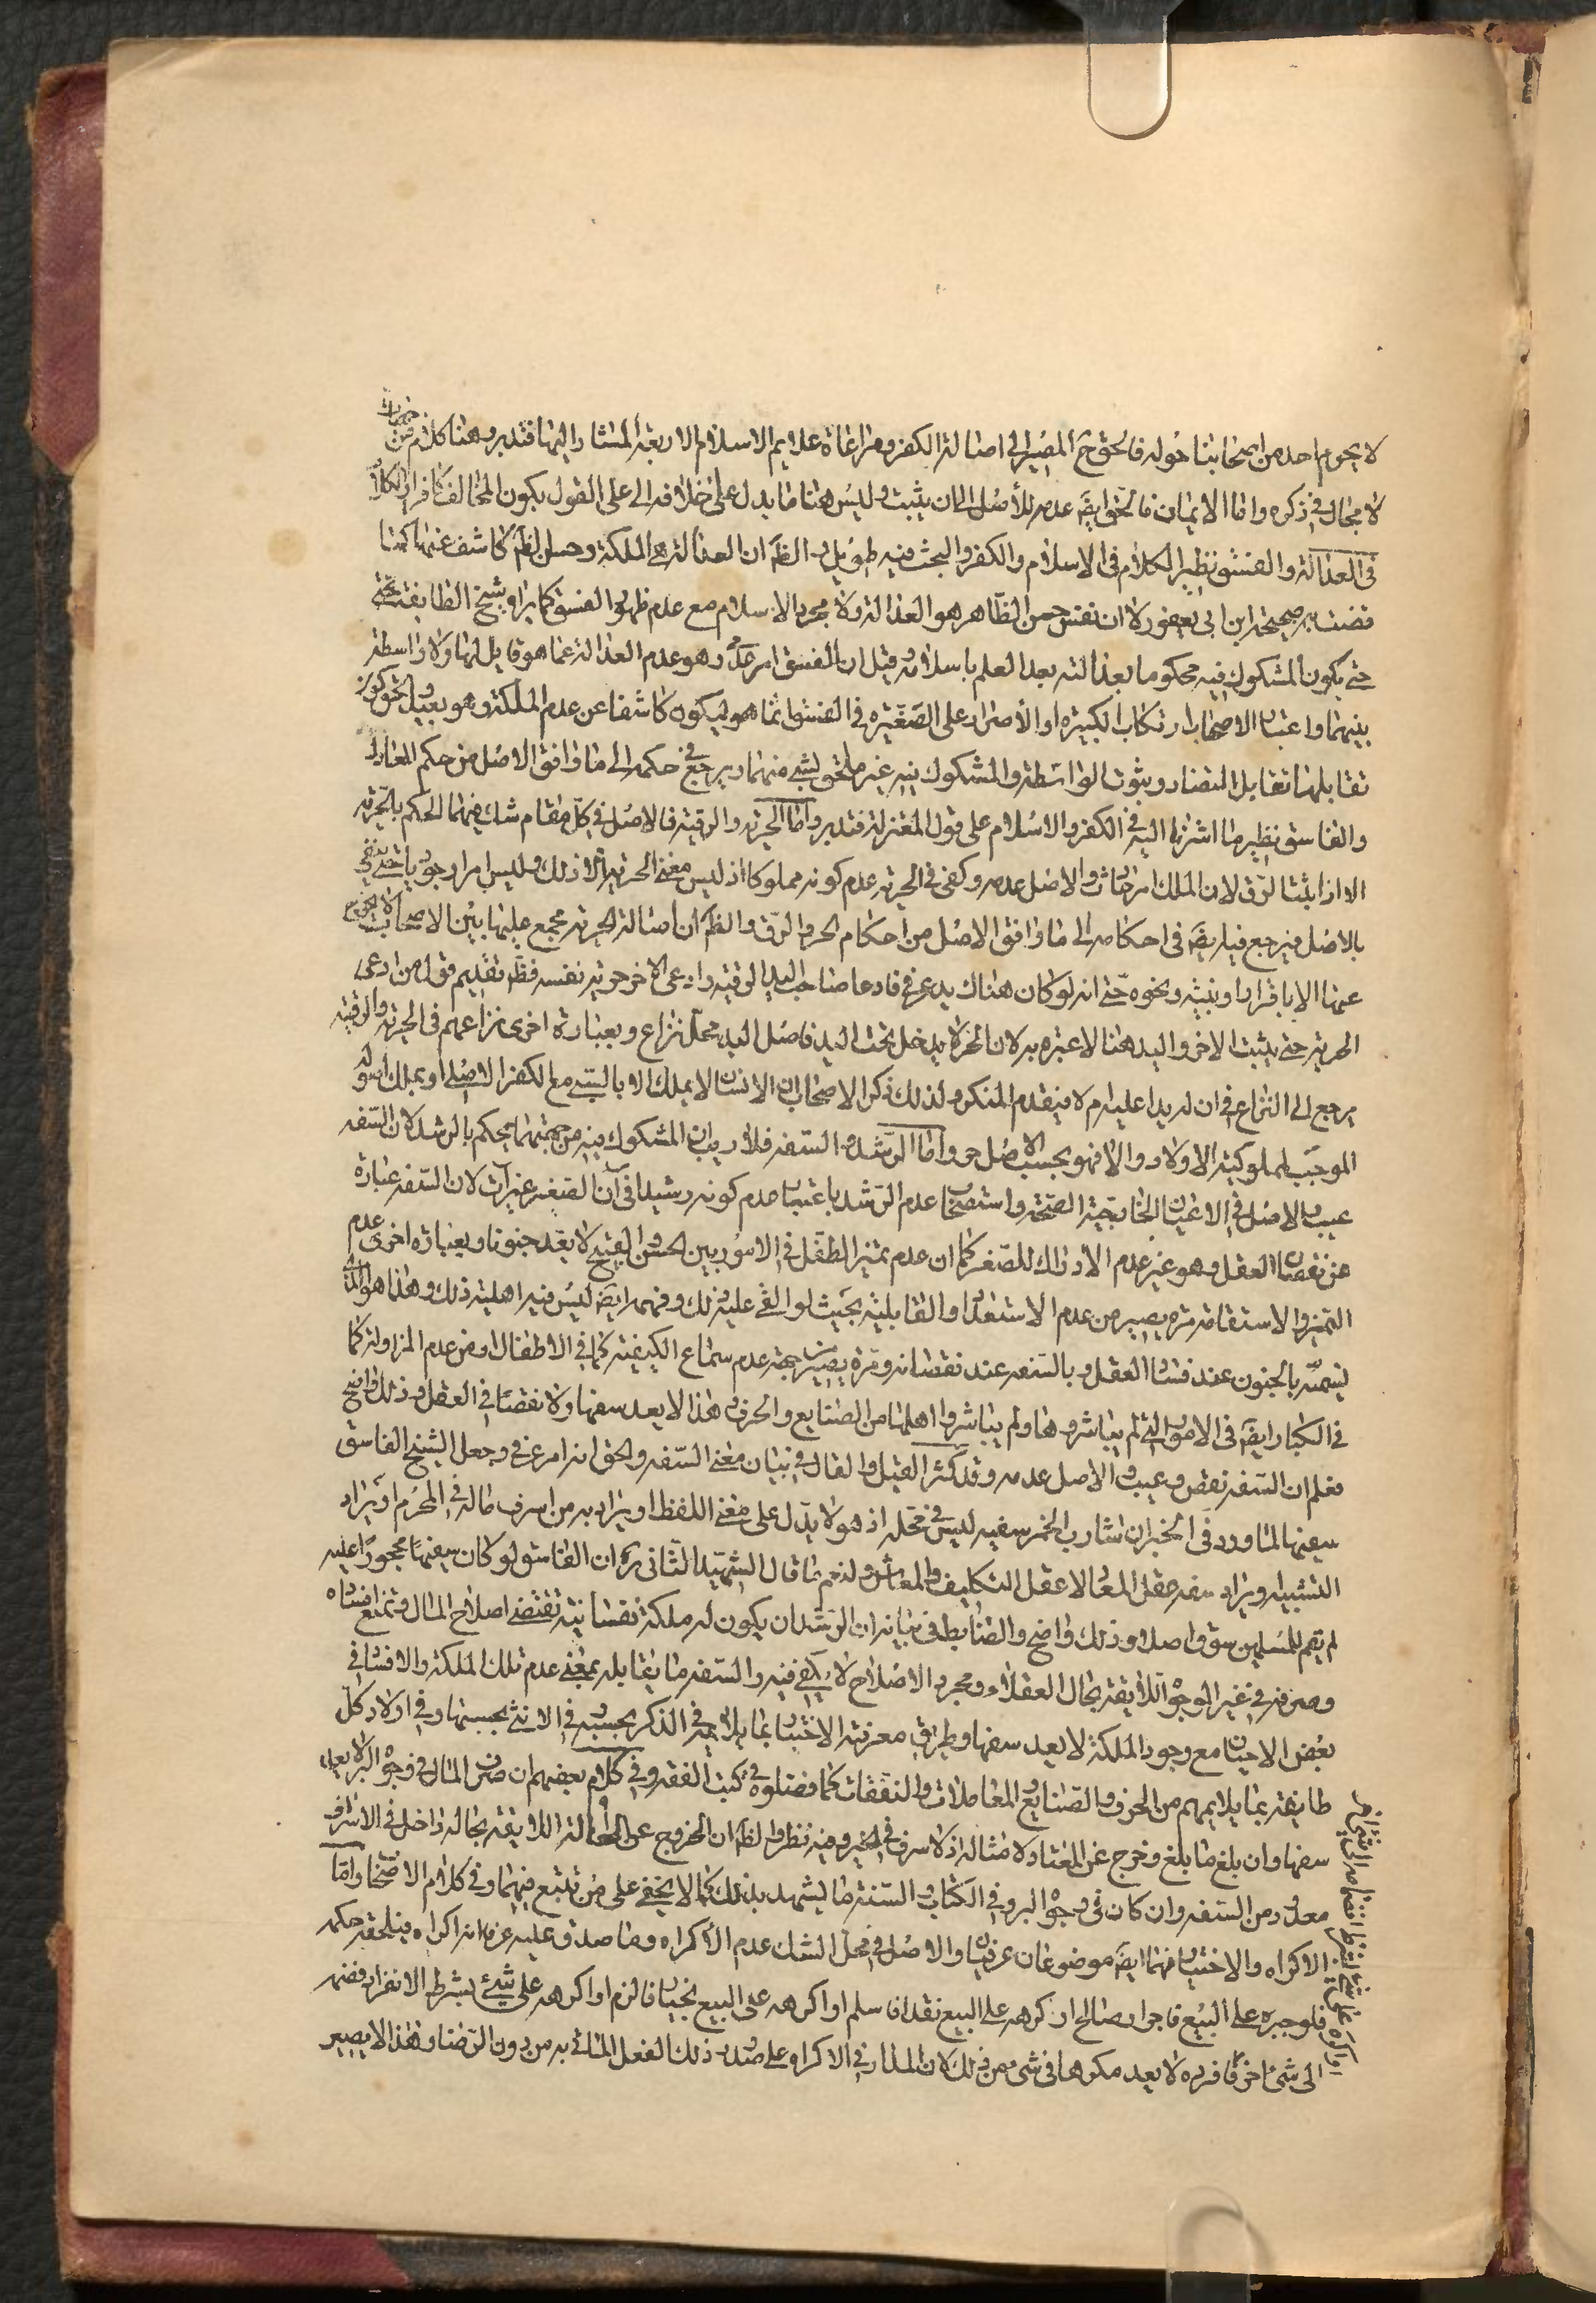 لا يحوم احد من اصحابنا حوله فالحق ح المصير الى اصالة الكفر ومراعاة علايم الاسلام الاربعة المشار اليها فتدبر وهنا كلام من جهات
لا مجال في ذكره واما الايمان فالحق ايضا عدمه للأصل الى ان يثبت وليس هنا ما يدل على خلافه الى على القول بكون المخالف كافرا والكلام
في العدالة والفسق نظير الكلام في الاسلام والكفر والبحث فيه طويل والظ ان العدالة هي الملكة وحسن الظ كاشف عنها كما
قضت به صحيحة ابن ابي يعفور لا ان نفس حسن الظاهر هو العدالة ولا مجرد الاسلام مع عدم ظهور الفسق كما يراه شيخ الطايفة
حتى يكون المشكوك فيه محكوما بعدالته بعد العلم باسلامه وقيل ان الفسق امر عدمي وهو عدم العدالة عما هو قابل لها ولا واسطة
بينهما واعتبار الاصحاب ارتكاب الكبيرة او الأصرار على الصغيرة في الفسق انما هو ليكون كاشفا عن عدم الملكة وهو بعيد والحق كون
تقابلهما تقابل التضاد وثبوت الواسطة والمشكوك فيه غير ملحق بشيء منهما ويرجع في حكمه الى ما وافق الاصل من حكم العادل
والفاسق نظير ما اشرنا اليه في الكفر والاسلام على قول المعتزلة فتدبر واما الحرية والرقية فالاصل في كل مقام شك فيهما الحكم بالحرية
الا اذا ثبت الرق لان الملك امر حادث والاصل عدمه وكفى في الحرية عدم كونه مملوكا اذ ليس معنى الحرية الا ذلك وليس امرا وجوديا حتى ينفى
بالاصل فيرجع فيه ايضا في احكامه الى ما وافق الاصل من احكام الحر والرق والظ ان اصالة الحرية مجمع عليها بين الاصحاب لا يخرج
عنها الا باقرار او بينة ونحوه حتى انه لو كان هناك يد عرفي فادعا صاحب اليد الرقية وادعى الاخر حرية نفسه فظ تقديم قول من ادعى
الحرية حتى يثبت الاخر واليد هنا لا عبرة به لان الحر لا يدخل تحت اليد فاصل اليد محل نزاع وبعبارة اخرى نزاعهم في الحرية والرقية
يرجع الى النزاع في ان له يدا عليه ام لا فيقدم المنكر ولذلك ذكر الاصحاب ان الانسان لا يملك الا بالسبي مع الكفر الاصلي او بملك ابويه
الموجب لمملوكية الاولاد والا فهو بحسب الاصل حر واما الرشد والسفه فلا ريب ان المشكوك فيه من جهتهما يحكم بالرشد لان السفه
عيب والاصل في الاعيان الخارجية الصحة واستصحاب عدم الرشد باعتبار عدم كونه رشيدا في آن الصغر غير آت لان السفه عبارة
عن نقصان العقل وهو غير عدم الادراك للصغر كما ان عدم تميز الطفل في الامور بين الحسن والقبيح لا يعد جنونا وبعبارة اخرى عدم
التميز والاستقامة مرة يصير من عدم الاستعداد والقابلية بحيث لو القي عليه ذلك وفهم ايضا ليس فيه اهلية ذلك وهذا هو الذي
يسمى بالجنون عند فساد العقل وبالسفه عند نقصانه ومرة يصير من جهة عدم سماع الكيفية كما في الاطفال او من عدم المزاولة كما
في الكبار ايضا في الامور التي لم يباشروها ولم يباشروا اهلها من الصنايع والحرف وهذا لا يعد سفها ولا نقصا في العقل وذلك واضح
فعلم ان السفه نقص وعيب والاصل عدمه وقد كثر القيل والقال في بيان معنى السفه والحق انه امر عرفي وجعل الشيخ الفاسق
سفيها لما ورد في الخبر ان شارب الخمر سفيه ليس في محله اذ هو لا يدل على معنى اللفظ او يراد به من اسرف ماله في المحرم او يراد
التشبيه ويراد سفه عقل المعاد لا عقل التكليف والمعاش ولنعم ما قال الشهيد الثاني ره ان الفاسق لو كان سفيها محجورا عليه
لم يقم للمسلمين سوق اصلا وذلك واضح والضابط في بيانه ان الرشد ان يكون له ملكة نفسانية تقتضي اصلاح المال وتمنع افساده
وصرفه في غير الوجوه اللايقة بحال العقلاء ومجرد الاصلاح لا يكفي فيه والسفه ما يقابله بمعنى عدم تلك الملكة والافساد في
بعض الاحيان مع وجود الملكة لا يعد سفها وطريق معرفته الاختبار بما يلايمه في الذكر بحسبه في الانثى بحسبها وفي اولاد كل
طايفة بما يلايمهم من الحرف والصنايع والمعاملات والنفقات كما فصلوه في كتب الفقه وفي كلام بعضهم ان صرف المال في وجوه البر لا يعد
سفها وان بلغ ما بلغ وخرج عن المعتاد لامثاله اذ لا سرف في الخير وفيه نظر والظ ان الخروج عن الحالة اللايقة بحاله داخل في الاسراف
معدود من السفه وان كان في وجوه البر وفي الكتاب والسنة ما يشهد بذلك كما لا يخفى على من تتبع فيهما وفي كلام الاصحاب واما
الاكراه والاختيار فهما ايضا موضوعان عرفيان والاصل في محل الشك عدم الاكراه وما صدق عليه عرفا انه اكراه فيلحقه حكمه
فلو جبره على البيع فاجر او صالح او اكرهه على البيع نقدا فاسلم او اكرهه على البيع بخيار فالزم او اكرهه على شيء بشرط الانفراد فضمه
الى شيء اخر فافرده لا يعد مكرها في شيء من ذلك لان المدار في الاكراه على صدور ذلك الفعل المأتي به من دون الرضا وهذا لا يصير
او اكراه على شيء بشرط انضمامه الى شيء اخر